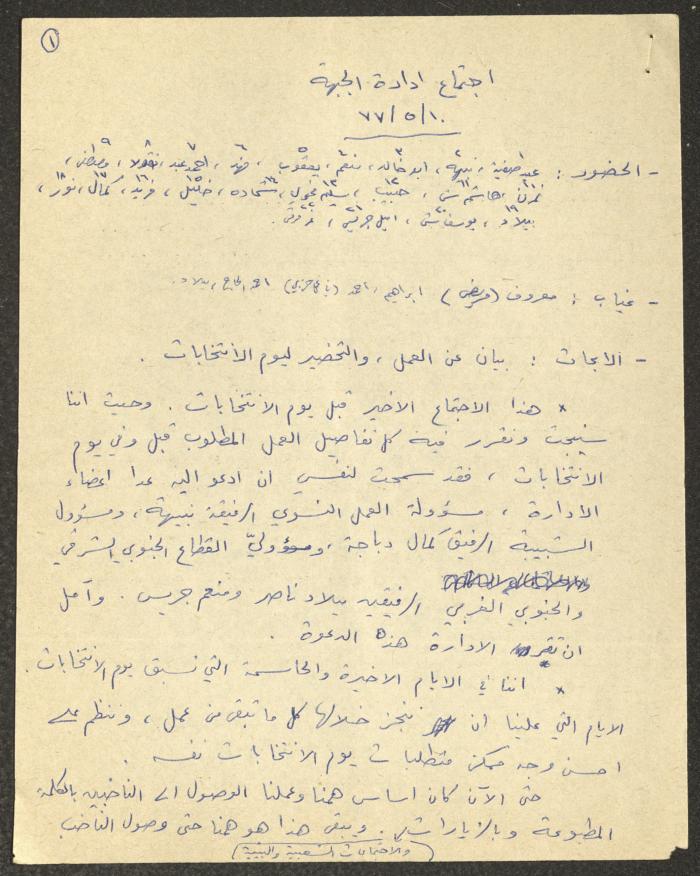 ١
اجتماع ادارة الجبهة
٧٧/٥/١٠
- الحضور : عبد صفية، نبيهة، ابو خالد، منعم، يعقوب، فهد، احمد عبد، نقولا، مصطفى،
نمر، هاشم، حبيب، سليم مخول، شحاده، خليل، فريد، كمال، نور،
ميلاد، يوسف، اميل جريس،
- غياب : معروف (مريض) ابراهيم، احمد احمد الحاج، ميلاد.
- الابحاث : بيان عن العمل، والتحضير ليوم الانتخابات .
* هذا الاجتماع الاخير قبل يوم الانتخابات . وحيث اننا
سنبحث ونقرر فيه كل تفاصيل العمل المطلوب قبل وفي يوم
الانتخابات ، فقد سمحت لنفسي ان ادعو اليه عدا اعضاء
الادارة ، مسؤولة العمل النسوي الرفيقة نبيهة، ومسؤول
الشبيبة الرفيق كمال دباجة، ومسؤوليّ القطاع الجنوبي الشرقي
والجنوبي الغربي الرفيقين ميلاد ناصر ومنعم جريس . وآمل
ان تقر الادارة هذه الدعوة .
* اننا في الايام الاخيرة والحاسمة التي تسبق يوم الانتخابات.
الايام التي علينا ان ننجز خلالها كل ما تبقى من عمل ، وننظم على
احسن وجه ممكن متطلبات يوم الانتخابات نفسه .
حتى الآن كان اساس همنا وعملنا الوصول الى الناخبين بالكلمة
المطبوعة وبالزيارات . ويبقى هذا هو همنا حتى وصول الناخب
(والاجتماعات الشعبية والبيتية)